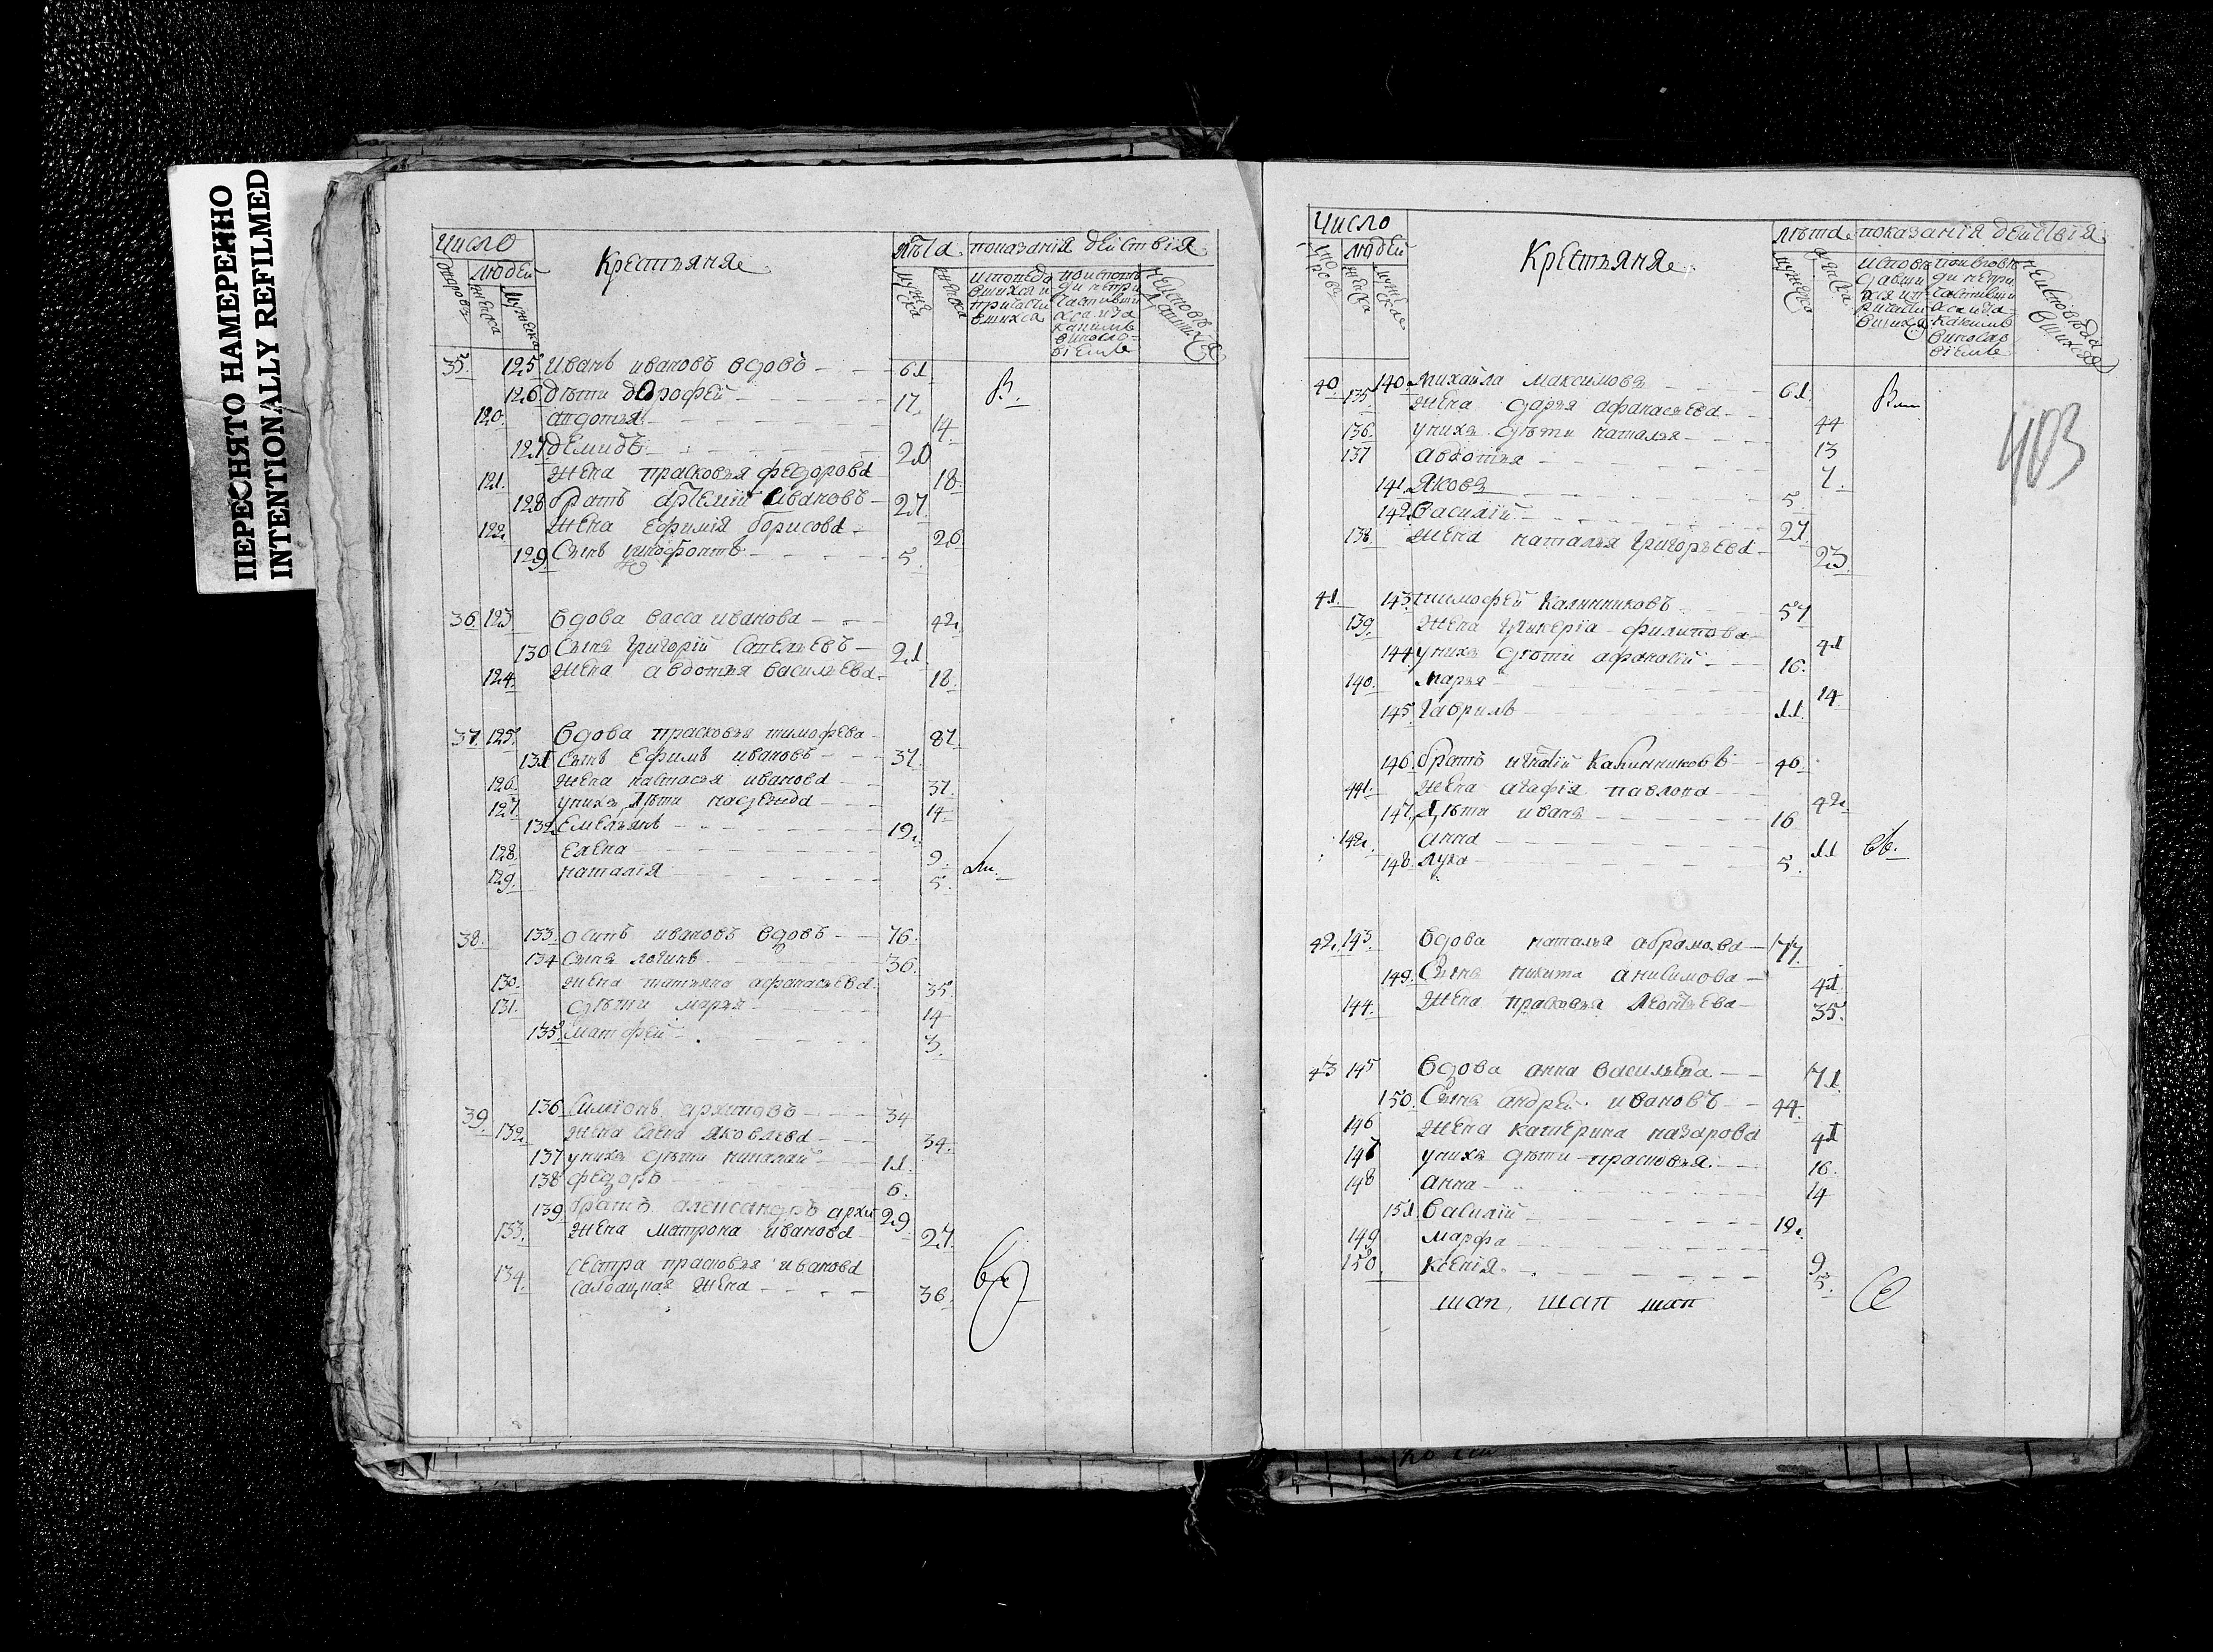 ПЕРЕСНЯТО НАМЕРЕННО
INTENTIONALLY REFILMED
Число Крестьяня лѣта показанія действія
людей
дворовъ женска мужеска мужеска женска
35. 125 Иванъ ивановъ вдовъ 61
126 дѣти дорофей 17
120. авдотья 14
127 демидъ 20
121. жена прасковья федорова 18
128 братъ артемій ивановъ 27
122. жена ефимія борисова 26
129. Сынъ 5
36. 123 вдова васса иванова 42
130 Сынъ григорій савельевъ 21
124. жена авдотья васильева 18.
37. 125. вдова прасковья тимофѣева 87
131 Сынъ ефимъ ивановъ 37
126. жена настасья иванова 37.
127. унихъ дѣти надежда 14
132 емельянъ 12
128. елена 9.
129. наталія 5.
38. 133. осипъ ивановъ вдовъ 76.
134 Сынъ логинъ 36.
130. жена татьяна афанасьева 35
131. дѣти марья 14
135 матфей 3.
39. 136 Симіонъ архиповъ 34
132. жена елена яковлева 34.
137 унихъ дѣти николай 11.
138 федоръ 6.
139 братъ александръ архи 29
133. жена матрона иванова 27.
134. сестра прасковья иванова
салдацкая жена 36.
Число Крестьяня лѣта показанія действія
людей
403
40. 140 михайла максимовъ 61.
135 жена дарья афанасьева 44
136. унихъ дѣти наталья 13
137 авдотья 7.
141. яковъ 5
142. василій 21.
138. жена наталья григорьева 23.
41. 143. тимофей калинниковъ 57
139. жена гликерія филипова 41
144 унихъ дѣти афанасій 16.
140. марья 14
145. гаврилъ 11.
146. братъ игнатій калинниковъ 46.
141. жена агафія павлова 42.
147. дѣти иванъ 16
142. анна 11
148. лука 5.
42. 143. вдова наталья абрамова 77.
149. Сынъ никита анисимова 41
144. жена прасковья леонтьева 35.
43 145 вдова анна васильева 71.
150. Сынъ андрей ивановъ 44.
146 жена катерина назарова 41
147 унихъ дѣти прасковья 16.
148 анна 14
151. василій 12.
149 марфа 9
150. ксенія 5.
шап, шап шап